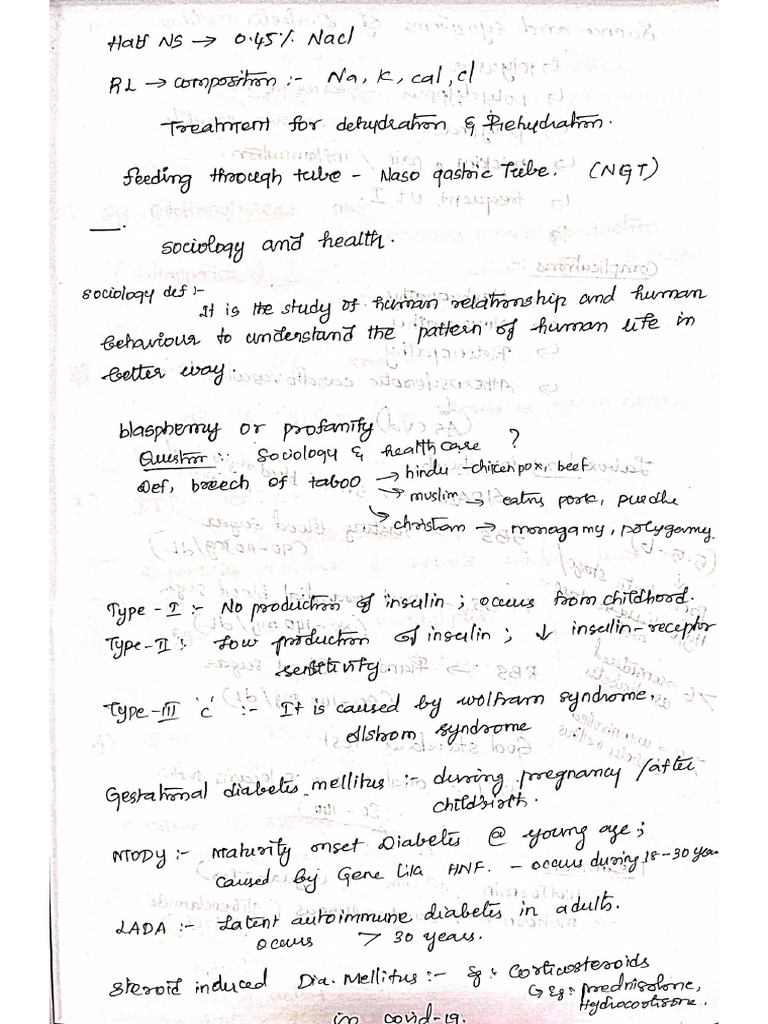 Half NS → 0.45% Nacl
RL → composition :- Na, K, cal, cl
Treatment for dehydration & Prehydration.
feeding through tube - Naso gastric Tube. (NGT)
sociology and health.
sociology def :-
It is the study of human relationship and human
behaviour to understand the pattern of human life in
better way.
blasphemy or profanity
Question :- Sociology & healthcare ?
Def, breech of taboo → hindu - chicken pox, beef
→ muslim → eating pork,
→ christian → monogamy, polygamy.
Type - I :- No production of insulin ; occurs from childhood.
Type - II :- low production of insulin ; ↓ insulin-receptor
sensitivity.
Type - III 'c' :- It is caused by wolfram syndrome,
syndrome
Gestational diabetes mellitus :- during pregnancy /after
childbirth.
MODY :- Maturity onset Diabetes @ young age ;
caused by Gene HNF. - occurs during 18-30 year
LADA :- Latent autoimmune diabetes in adults.
occurs > 30 years.
Steroid induced Dia. Mellitus :- Eg :- Corticosteroids
↳ Eg :- prednisolone,
Hydrocortisone.
in covid-19.